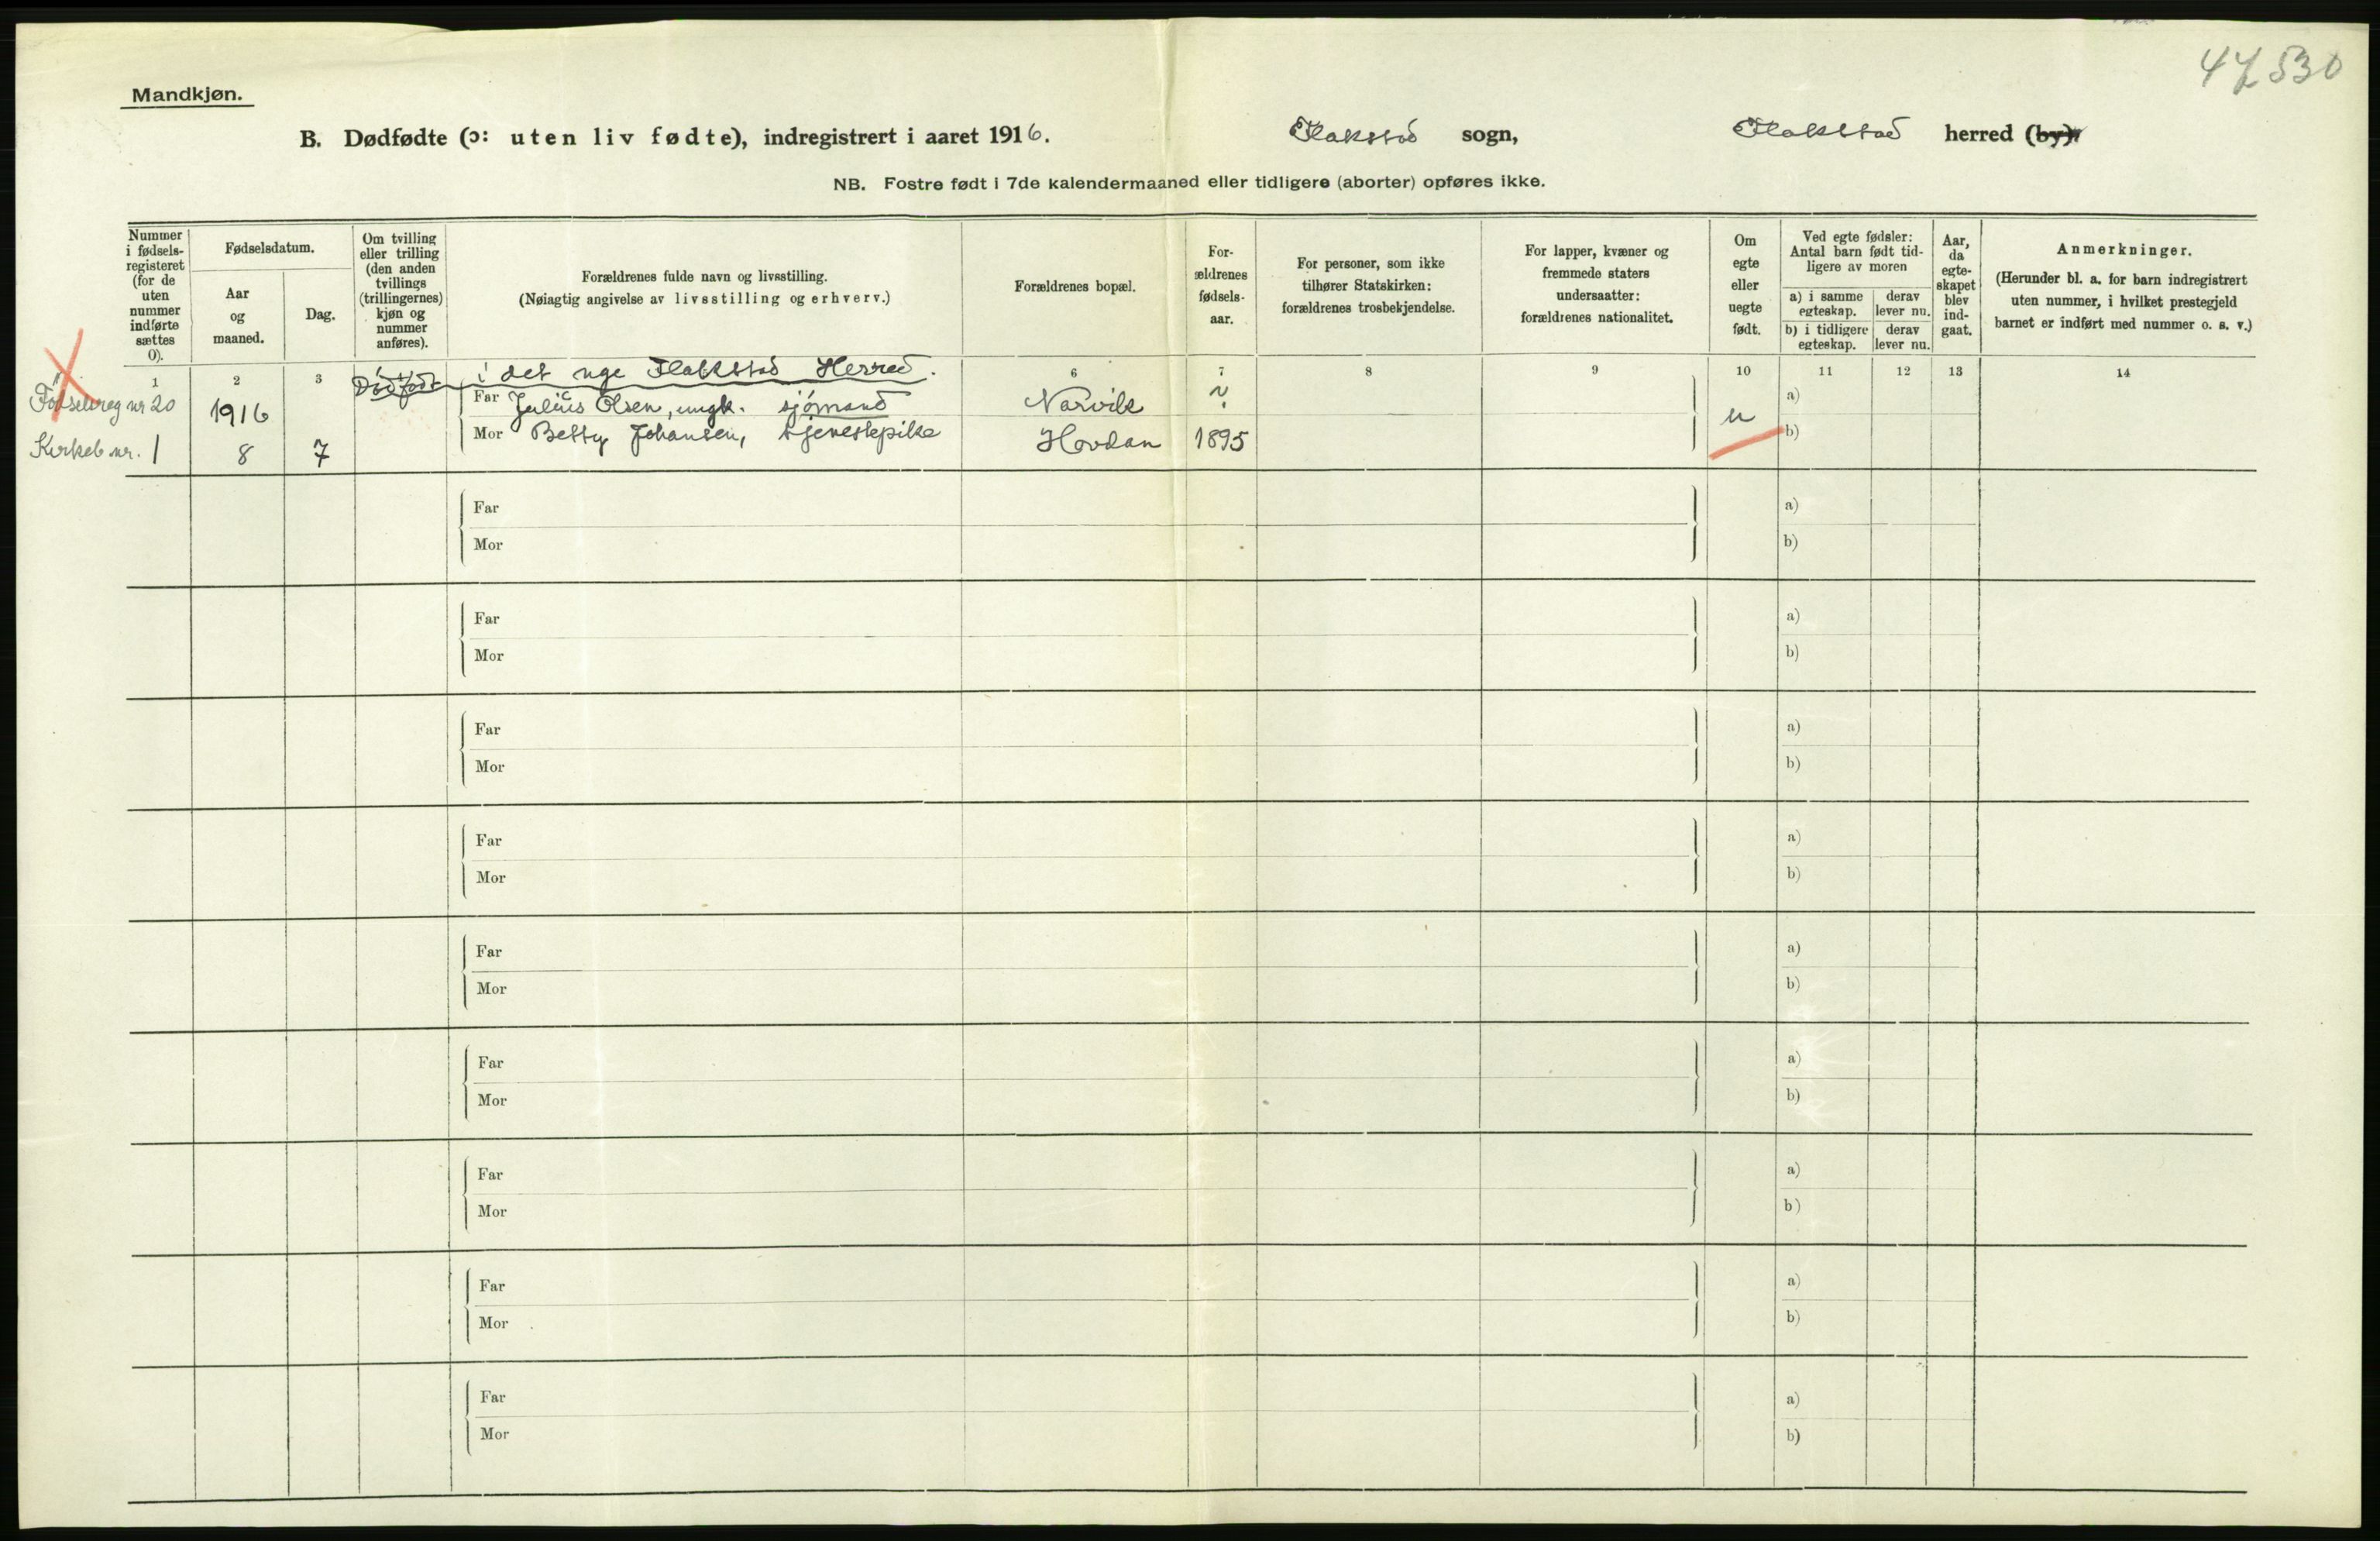 47530
Mandkjøn.
B. Dødfødte (ɔ: uten liv fødte), indregistrert i aaret 1916. Flakstad sogn, Flakstad herred (by).
NB. Fostre født i 7de kalendermaaned eller tidligere (aborter) opføres ikke.
Nummer i fødsels-registeret (for de uten nummer indførte sættes 0).
Fødselsdatum.
Aar og maaned.
Dag.
Om tvilling eller trilling (den anden tvillings (trillingernes) kjøn og nummer anføres).
Forældrenes fulde navn og livsstilling.
(Nøiagtig angivelse av livsstilling og erhverv.)
Forældrenes bopæl.
For-ældrenes fødsels-aar.
For personer, som ikke tilhører Statskirken: forældrenes trosbekjendelse.
For lapper, kvæner og fremmede staters undersaatter: forældrenes nationalitet.
Om egte eller uegte født.
Ved egte fødsler: Antal barn født tid-ligere av moren
a) i samme egteskap. derav lever nu.
b) i tidligere egteskap. derav lever nu.
Aar, da egte-skapet blev ind-gaat.
Anmerkninger.
(Herunder bl. a. for barn indregistrert uten nummer, i hvilket prestegjeld barnet er indført med nummer o. s. v.)
1 2 3 6 7 8 9 10 11 12 13 14
Dødfødt i det nye Flakstad Herred.
Fødselsreg nr 20 1916 Far Julius Olsen, ungk. sjömand Narvik ? u a)
Kirkeb nr. 1 8 7 Mor Betty Johansen, tjenestepike Hovdan 1895 b)
Far a)
Mor b)
Far a)
Mor b)
Far a)
Mor b)
Far a)
Mor b)
Far a)
Mor b)
Far a)
Mor b)
Far a)
Mor b)
Far a)
Mor b)
Far a)
Mor b)